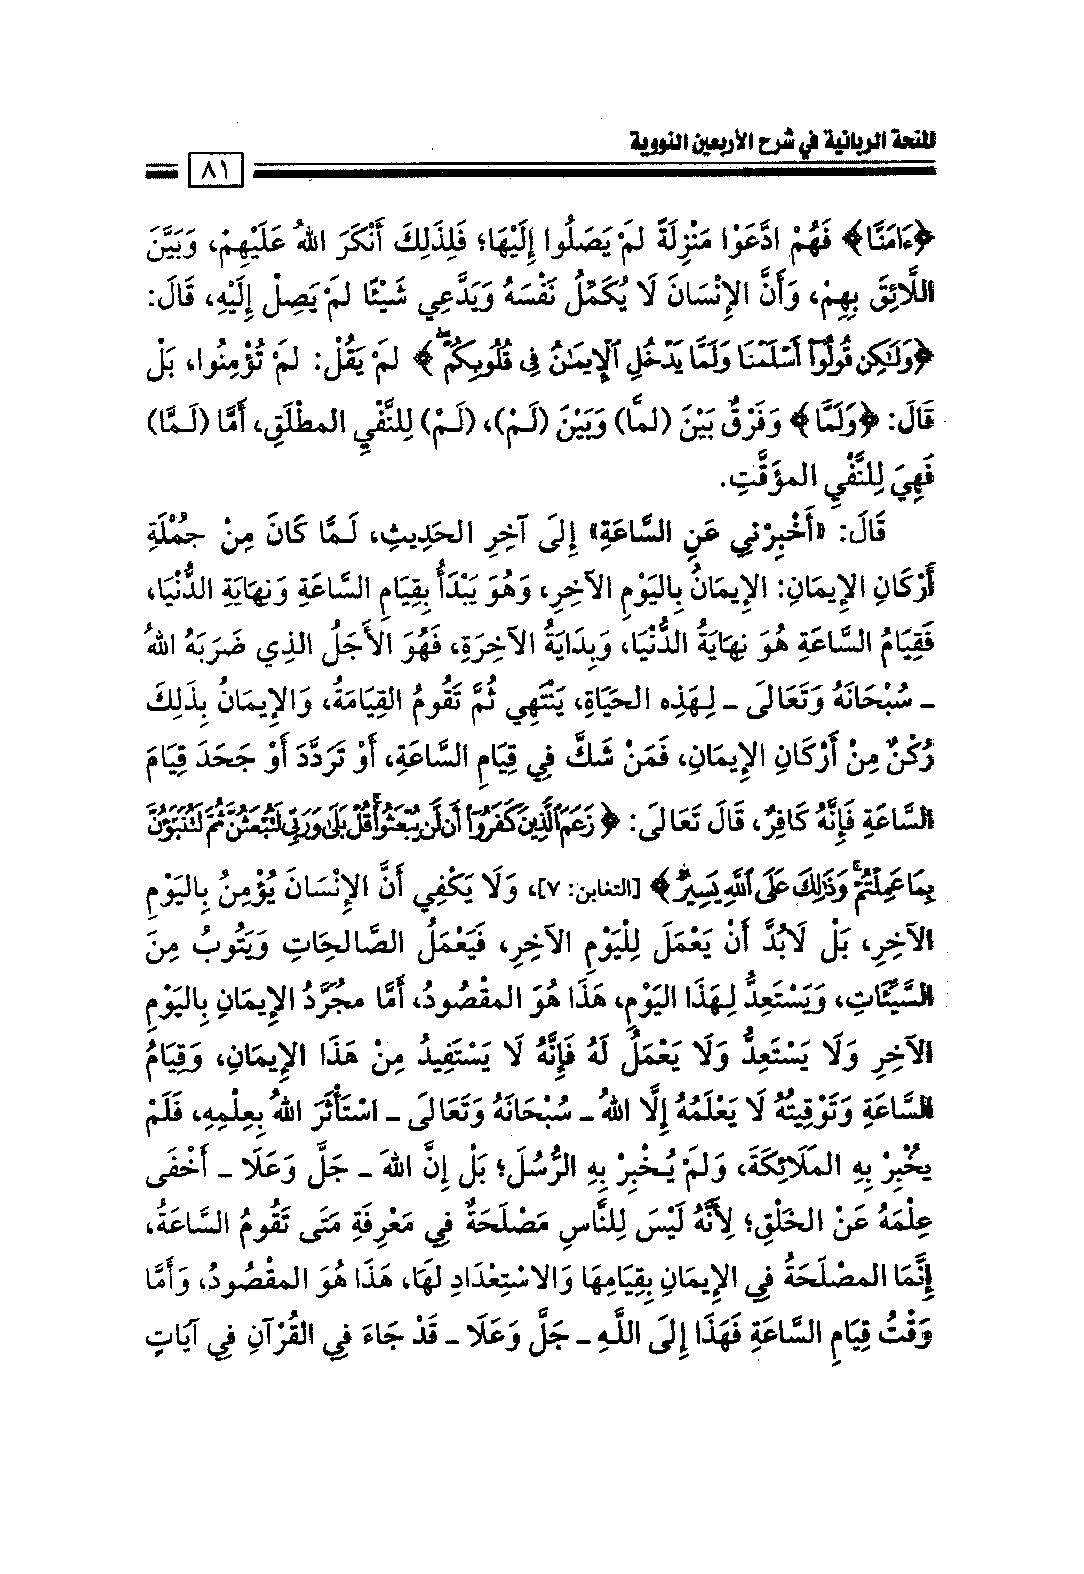 المنحة الربانية في شرح الأربعين النووية
٨١
﴿ءَامَنَّا﴾ فَهُمْ ادَّعَوْا مَنْزِلَةً لَمْ يَصَلُوا إِلَيْهَا؛ فَلِذَلِكَ أَنْكَرَ اللهُ عَلَيْهِمْ، وَبَيَّنَ
اللَّائِقَ بِهِمْ، وَأَنَّ الإِنْسَانَ لَا يُكَمِّلُ نَفْسَهُ وَيَدَّعِي شَيْئًا لَمْ يَصِلْ إِلَيْهِ، قَالَ:
﴿وَلَٰكِن قُولُوٓا۟ أَسْلَمْنَا وَلَمَّا يَدْخُلِ ٱلْإِيمَٰنُ فِى قُلُوبِكُمْ ۖ﴾ لَمْ يَقُلْ: لَمْ تُؤْمِنُوا، بَلْ
قَالَ: ﴿وَلَمَّا﴾ وَفَرْقٌ بَيْنَ (لمَّا) وَبَيْنَ (لَمْ)، (لَمْ) لِلنَّفْيِ المطْلَقِ، أَمَّا (لَمَّا)
فَهِيَ لِلنَّفْيِ المؤَقَّتِ.
قَالَ: «أَخْبِرْنِي عَنِ السَّاعَةِ» إِلَى آخِرِ الحَدِيثِ، لَمَّا كَانَ مِنْ جُمْلَةِ
أَرْكَانِ الإِيمَانِ: الإِيمَانُ بِاليَوْمِ الآخِرِ، وَهُوَ يَبْدَأُ بِقِيَامِ السَّاعَةِ وَنِهَايَةِ الدُّنْيَا،
فَقِيَامُ السَّاعَةِ هُوَ نِهَايَةُ الدُّنْيَا، وَبِدَايَةُ الآخِرَةِ، فَهُوَ الأَجَلُ الذِي ضَرَبَهُ اللهُ
- سُبْحَانَهُ وَتَعَالَى - لِهَذِه الحَيَاةِ، يَنْتَهِي ثُمَّ تَقُومُ القِيَامَةُ، وَالإِيمَانُ بِذَلِكَ
رُكْنٌ مِنْ أَرْكَانِ الإِيمَانِ، فَمَنْ شَكَّ فِي قِيَامِ السَّاعَةِ، أَوْ تَرَدَّدَ أَوْ جَحَدَ قِيَامَ
السَّاعَةِ فَإِنَّهُ كَافِرٌ، قَالَ تَعَالَى: ﴿زَعَمَ ٱلَّذِينَ كَفَرُوٓا۟ أَن لَّن يُبْعَثُوا۟ ۚ قُلْ بَلَىٰ وَرَبِّى لَتُبْعَثُنَّ ثُمَّ لَتُنَبَّؤُنَّ
بِمَا عَمِلْتُمْ ۚ وَذَٰلِكَ عَلَى ٱللَّهِ يَسِيرٌ﴾ [التغابن: ٧]، وَلَا يَكْفِي أَنَّ الإِنْسَانَ يُؤْمِنُ بِاليَوْمِ
الآخِرِ، بَلْ لَابُدَّ أَنْ يَعْمَلَ لِلْيَوْمِ الآخِرِ، فَيَعْمَلُ الصَّالِحَاتِ وَيَتُوبُ مِنَ
السَّيِّئَاتِ، وَيَسْتَعِدُّ لِهَذَا اليَوْمِ، هَذَا هُوَ المقْصُودُ، أَمَّا مجُرَّدُ الإِيمَانِ بِاليَوْمِ
الآخِرِ وَلَا يَسْتَعِدُّ وَلَا يَعْمَلُ لَهُ فَإِنَّهُ لَا يَسْتَفِيدُ مِنْ هَذَا الإِيمَانِ، وَقِيَامُ
السَّاعَةِ وَتَوْقِيتُهُ لَا يَعْلَمُهُ إِلَّا اللهُ - سُبْحَانَهُ وَتَعَالَى - اسْتَأْثَرَ اللهُ بِعِلْمِهِ، فَلَمْ
يخُبِرْ بِهِ المَلَائِكَةَ، وَلَمْ يُخْبِرْ بِهِ الرُّسُلَ؛ بَلْ إِنَّ اللهَ - جَلَّ وَعَلَا - أَخْفَى
عِلْمَهُ عَنْ الخَلْقِ؛ لِأَنَّهُ لَيْسَ لِلنَّاسِ مَصْلَحَةٌ فِي مَعْرِفَةِ مَتَى تَقُومُ السَّاعَةُ،
إِنَّمَا المصْلَحَةُ فِي الإِيمَانِ بِقِيَامِهَا وَالاسْتِعْدَادِ لهَا، هَذَا هُوَ المقْصُودُ، وَأَمَّا
وَقْتُ قِيَامِ السَّاعَةِ فَهَذَا إِلَى اللَّهِ - جَلَّ وَعَلَا - قَدْ جَاءَ فِي القُرْآنِ فِي آيَاتٍ